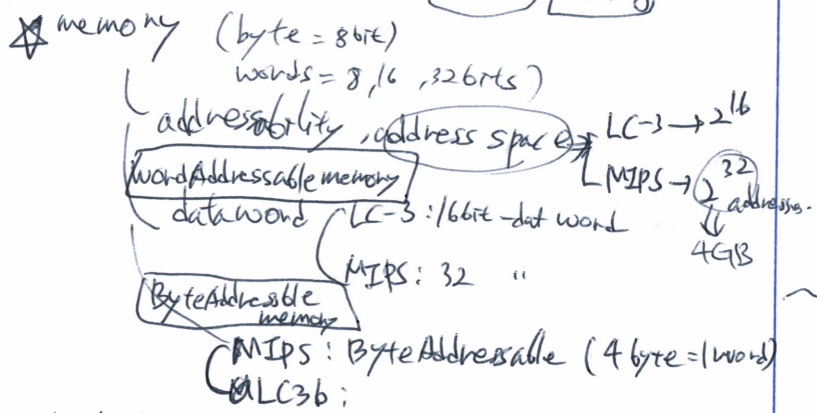 ☆ memory (byte = 8bit)
words = 8,16,32bits)
addressability, address space → LC-3 → 2^16
MIPS → 2^32 addresses.
⇓
4GB
Word Addressable memory
data word LC-3 : 16bit -dat word
MIPS : 32 "
ByteAddressble memory
MIPS : ByteAddressable (4 byte = 1 word)
LC3b :